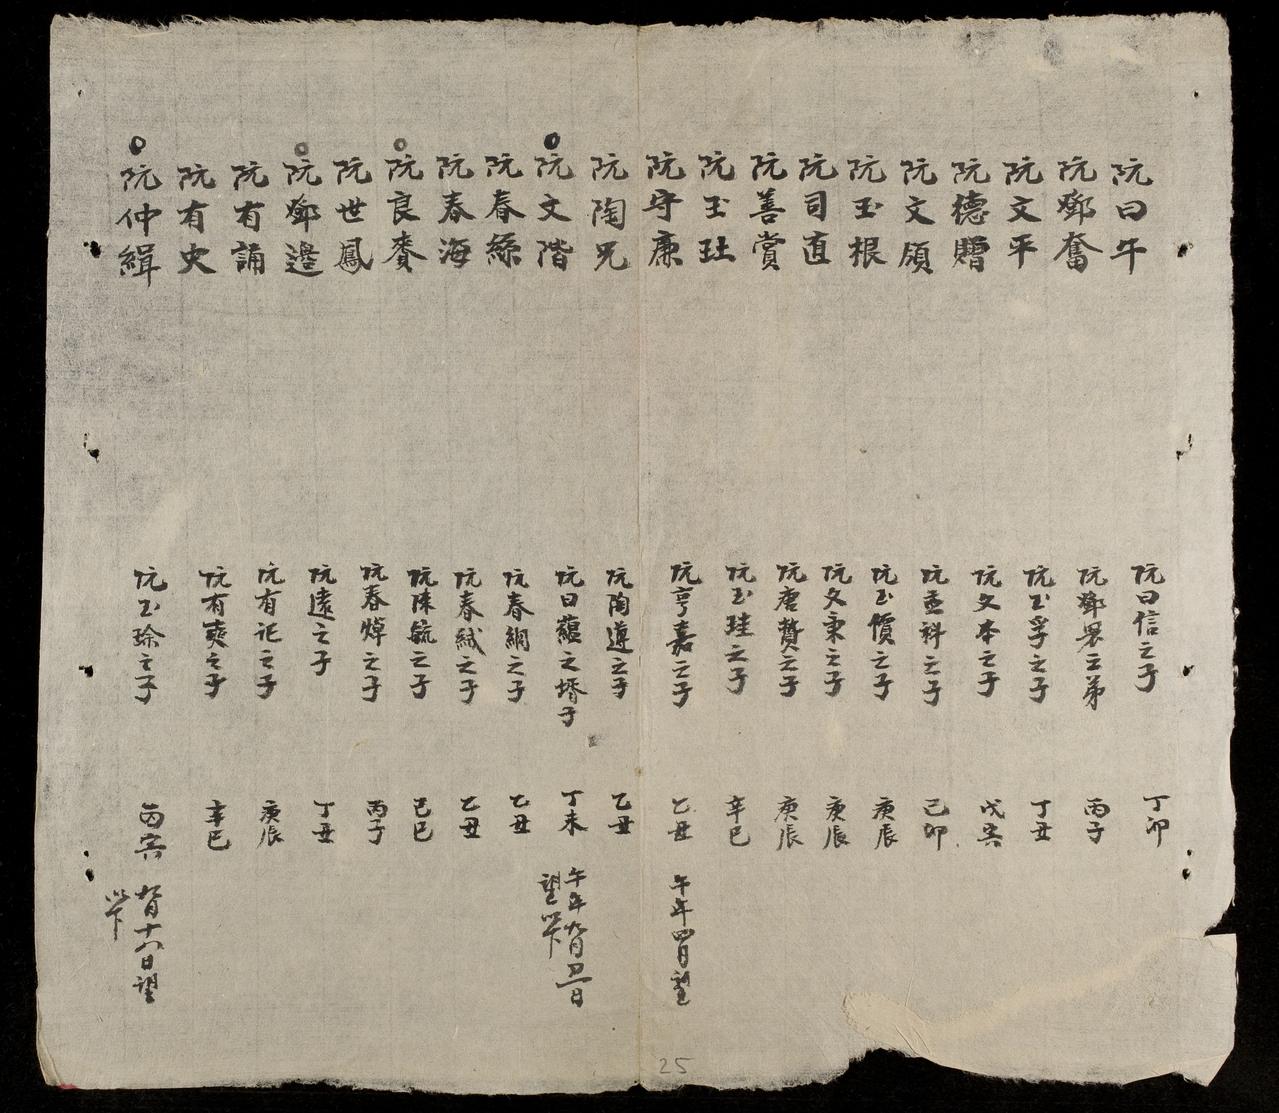 阮曰午 阮曰信之子 丁卯
阮鄧奮 阮鄧累之弟 丙子
阮文平 阮玉孚之子 丁丑
阮德贈 阮文本之子 戊寅
阮文頎 阮孟科之子 己卯
阮玉根 阮玉價之子 庚辰
阮司直 阮文秉之子 庚辰
阮善賞 阮唐贊之子 庚辰
阮玉玨 阮玉珪之子 辛巳
阮守廉 阮亨嘉之子 乙丑 午年四月望
阮陶兄 阮陶遵之子 乙丑
阮文階 阮曰蘊之壻子 丁未 午年九月初三日
望以下
阮春綵 阮春綱之子 乙丑
阮春海 阮春絨之子 乙丑
阮良賚 阮陳毓之子 己巳
阮世鳳 阮春焯之子 丙子
阮鄧邊 阮遠之子 丁丑
阮有誦 阮有記之子 庚辰
阮有史 阮有爽之子 辛巳
阮仲緝 阮玉珍之子 丙寅 九月十八日望
以下
25